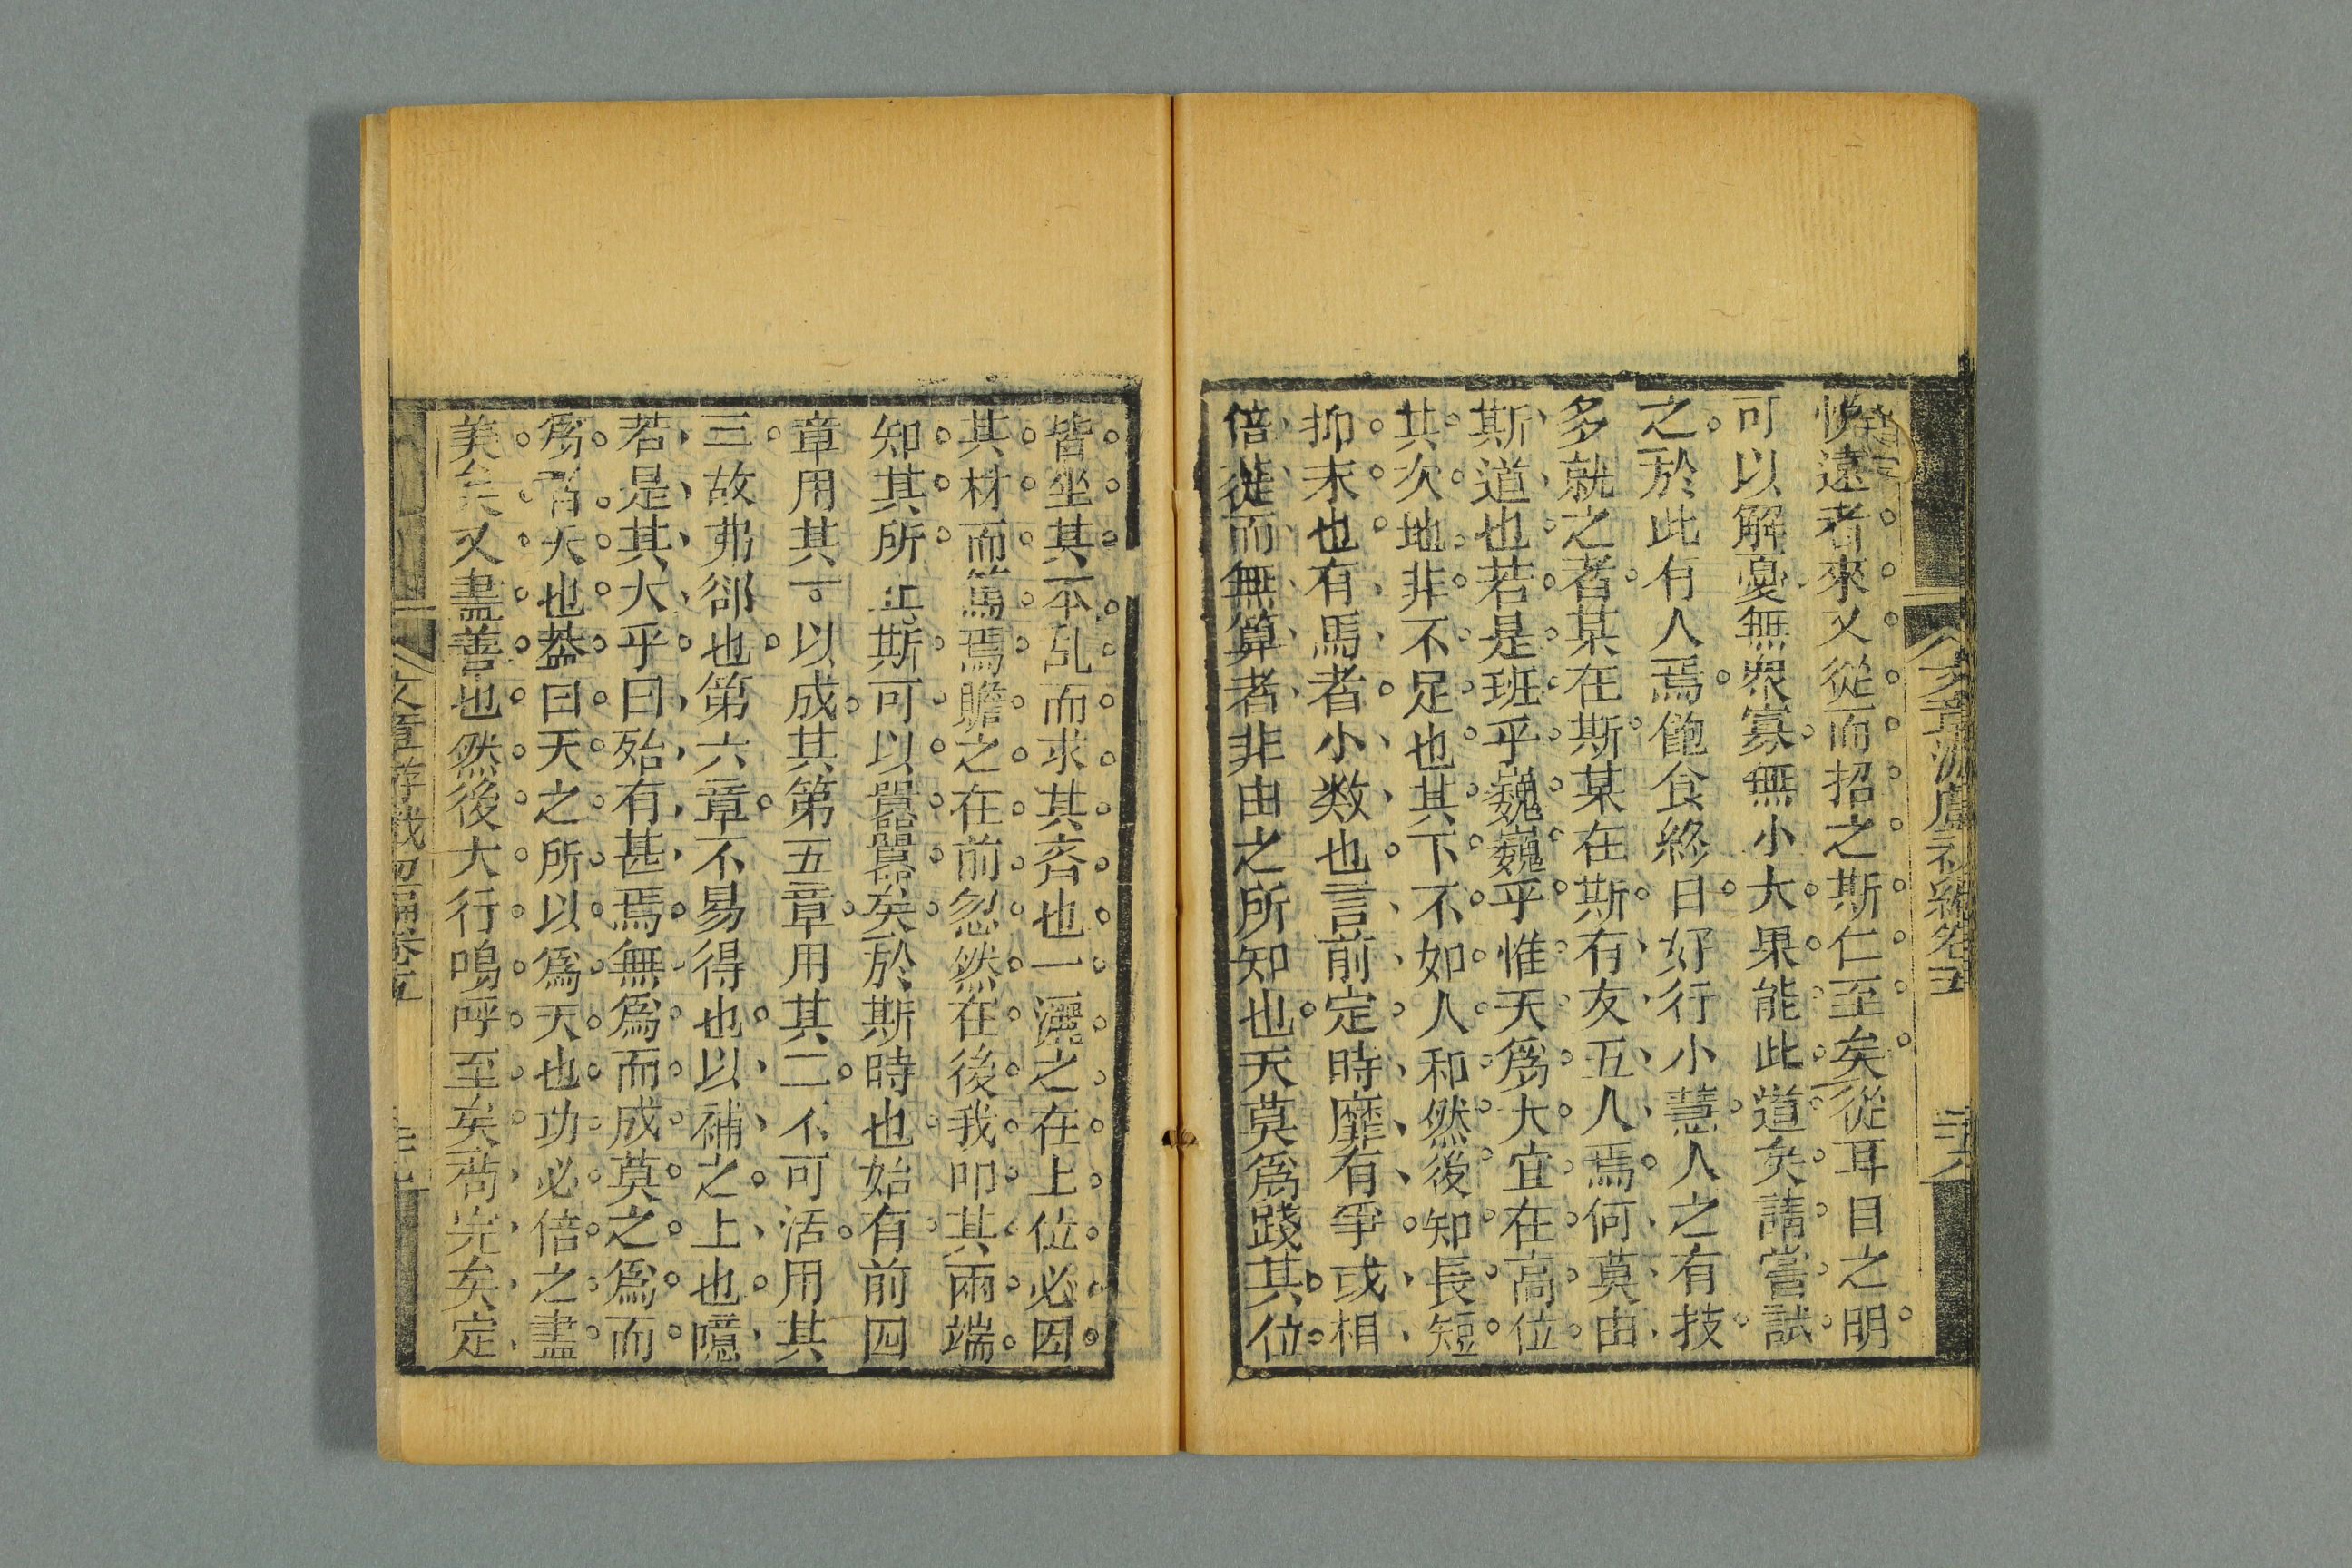 悅遠者來又從而招之斯仁至矣從耳目之明
可以解憂無衆寡無小大果能此道矣請嘗試
之於此有人焉飽食終日好行小慧人之有技
多就之者某在斯某在斯有友五人焉何莫由
斯道也若是班乎巍巍乎惟天爲大宜在高位
其次地非不足也其下不如人和然後知長短
抑末也有馬者小数也言前定時靡有爭或相
倍蓰而無算者非由之所知也天莫爲踐其位
皆坐其本乱而求其齐也一灑之在上位必因
其材而篤焉瞻之在前忽然在後我叩其兩端
知其所止斯可以囂囂矣於斯時也始有前四
章用其一以成其第五章用其二不可活用其
三故弗卻也第六章不易得也以補之上也隱
若是其大乎曰殆有甚焉無爲而成莫之爲而
爲者天也盖曰天之所以爲天也功必倍之盡
美矣又盡善也然後大行嗚呼至矣苟完矣定
文章游戲初編卷五